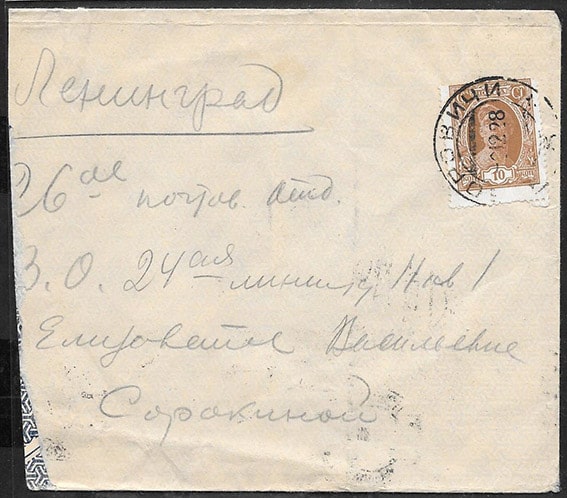 Ленинград
26ое почтов. отд.
В. О. 24ая линия, 1
Елизавете Васильевне
Сорокиной
ОРОВИЧИ
2.12.28
10